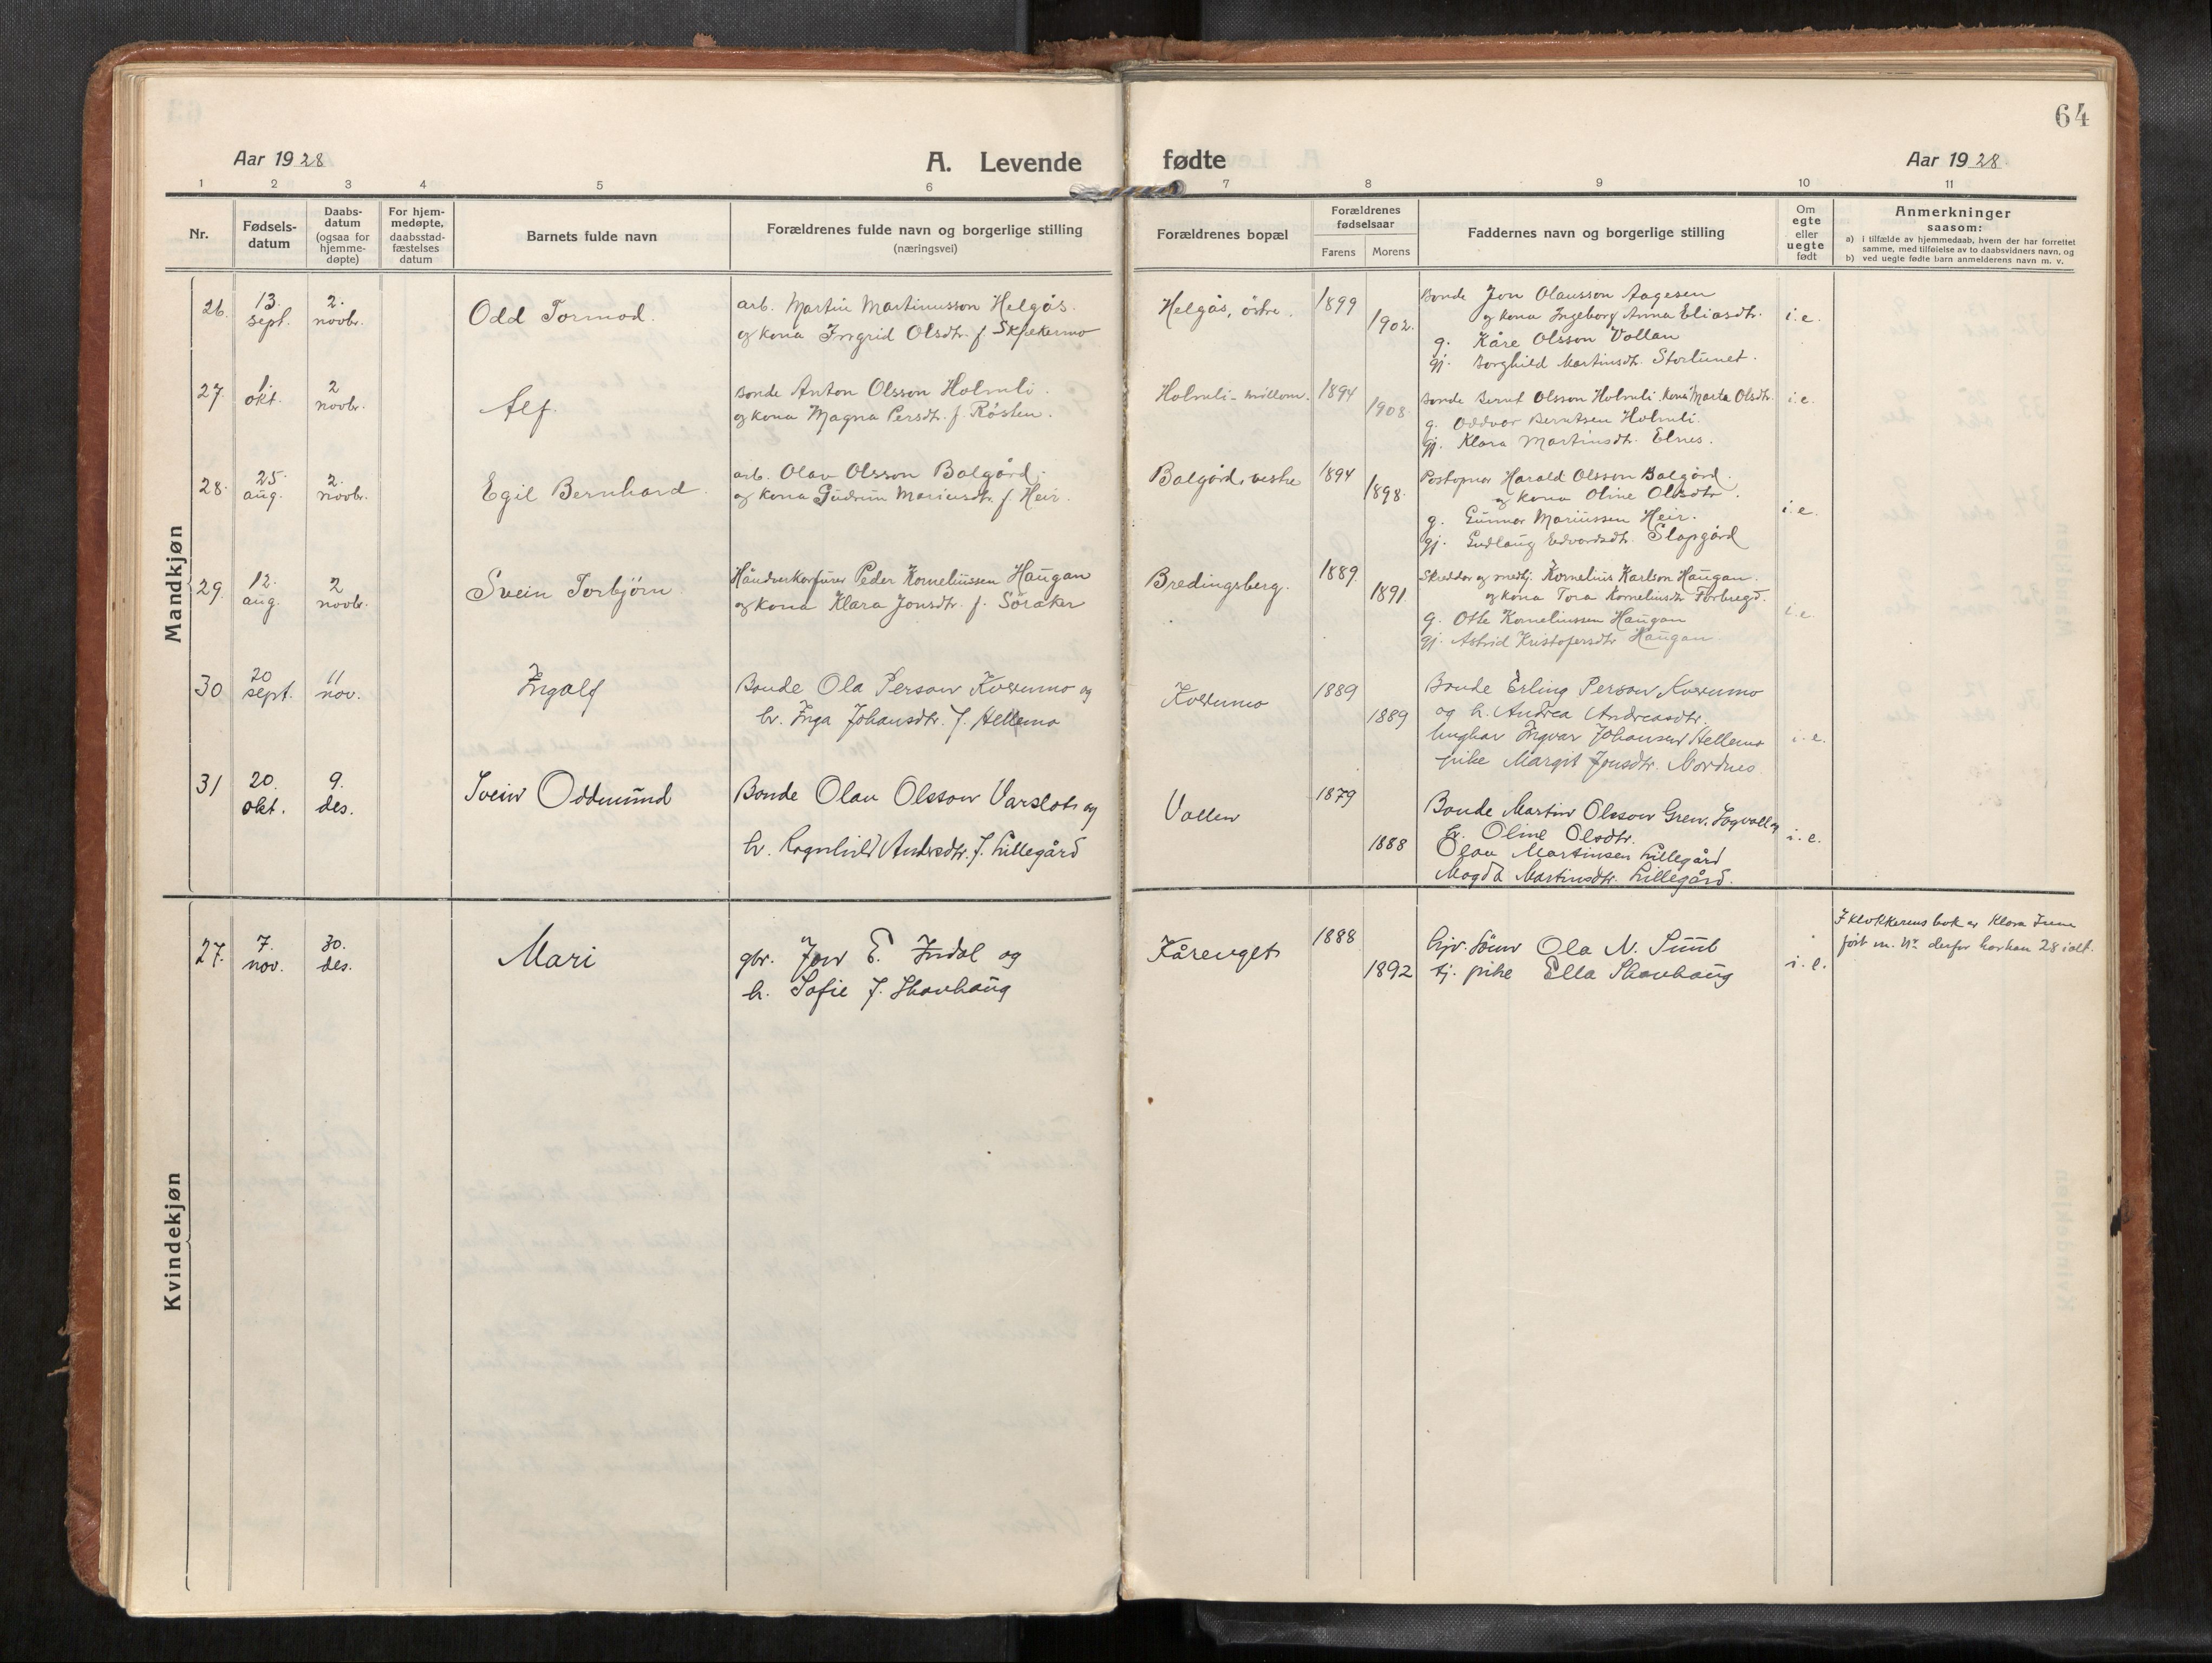 64
Aar 1928
A. Levende
fødte
Aar 1928
1 2 3 4 5 6 7 8 9 10 11
Nr.
Fødsels-
datum
Daabs-
datum
(ogsaa for
hjemme-
døpte)
For hjem-
medøpte,
daabsstad-
fæstelses
datum
Barnets fulde navn
Forældrenes fulde navn og borgerlige stilling
(næringsvei)
Forældrenes bopæl
Forældrenes
fødselsaar
Farens
Morens
Faddernes navn og borgerlige stilling
Om
egte
eller
uegte
født
Anmerkninger
saasom:
a) i tilfælde av hjemmedaab, hvem der har forrettet
samme, med tilføielse av to daabsvidners navn, og
b) ved uegte fødte barn anmelderens navn m. v.
Mandkjøn
26.
13.
sept.
2.
novbr.
Odd Tormod.
arb. Martin Martinusson Helgås.
og kona Ingrid Olsdtr. f. Skjækermo
Helgås, östre.
1899
1902.
Bonde Jon Olausson Aagesen
og kona Ingeborg Anna Eliasdtr.
g. Kåre Olsson Vollan
gj. Borghild Martinsdtr. Storlunet.
i.e.
27.
1.
okt.
2
novbr.
Alf.
Bonde Anton Olsson Holmli.
og kona Magna Persdtr. f. Rösten.
Holmli - millom.
1894
1908.
Bonde Bernt Olsson Holmli. kona Marta Olsdtr.
g. Oddvar Berntsen Holmli.
gj. Klara Martinsdtr. Elnes.
i.e.
28.
25.
aug.
2.
novbr.
Egil Bernhard.
arb. Olav Olsson Balgård.
og kona Gudrun Mariusdtr. f. Heir.
Balgård, vestre
1894
1898.
Postopnar Harald Olsson Balgård.
og kona Oline Olsdtr.
g. Gunnar Mariussen Heir.
gj. Gudlaug Edvardsdtr. Slapgård
i.e.
29.
12.
aug.
2
novbr.
Svein Torbjørn.
Håndverkarfurer Peder Korneliussen Haugan
og kona Klara Jonsdtr. f. Söraker
Bredingsberg.
1889.
1891.
Skreddar og medhj. Kornelius Karlson Haugan.
og kona Tora Korneliusdtr Forbregd.
g. Otte Korneliussen Haugan
gj. Astrid Kristofersdtr Haugan.
i.e.
30
20
sept.
11
nov.
Ingolf
Bonde Ola Person Kverumo og
h. Inga Johansdtr. f. Hellemo
Kverumo
1889
1889
Bonde Erling Person Kverumo
og h. Andrea Andreasdtr.
Ungkar Ingvar Johansen Hellemo
pike Margit Jonsdtr. Nordnes
i.e.
31
20.
okt.
9.
des.
Svein Oddmund
Bonde Olav Olsson Varslot og
h. Ragnhild Andersdtr. f. Lillegård
Vollen
1879
1888
Bonde Martin Olsson Gren. Sogvoll og
h. Oline Olsdtr.
Olav Martinsen Lillegård
Magda Martinsdtr. Lillegård.
i.e.
Kvindekjøn
27.
7.
nov.
30.
des.
Mari
gbr. Jon E. Indal og
h. Sofie f. Skavhaug
Kårenget
1888
1892
Gjv. sönn Ola N. Suul
tj. pike Ella Skavhaug
i.e.
I klokkerens bok er Klara
ført m. Nr. derfor har han 28 i alt.